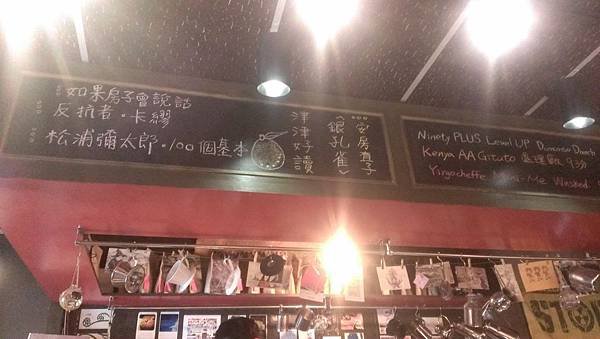 如果房子會說話
反抗者·卡繆
松浦彌太郎·100個基本
安房直子
《銀孔雀》
津津好讀
Ninety PLUS Level UP
Kenya AA Gitato 處理廠
Yirgacheffe
Washed
STO